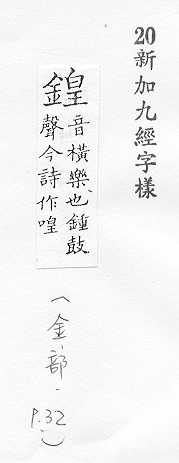 20新加九經字樣
鍠音橫樂也鍾鼓
聲今詩作喤
(金部.
P.32)